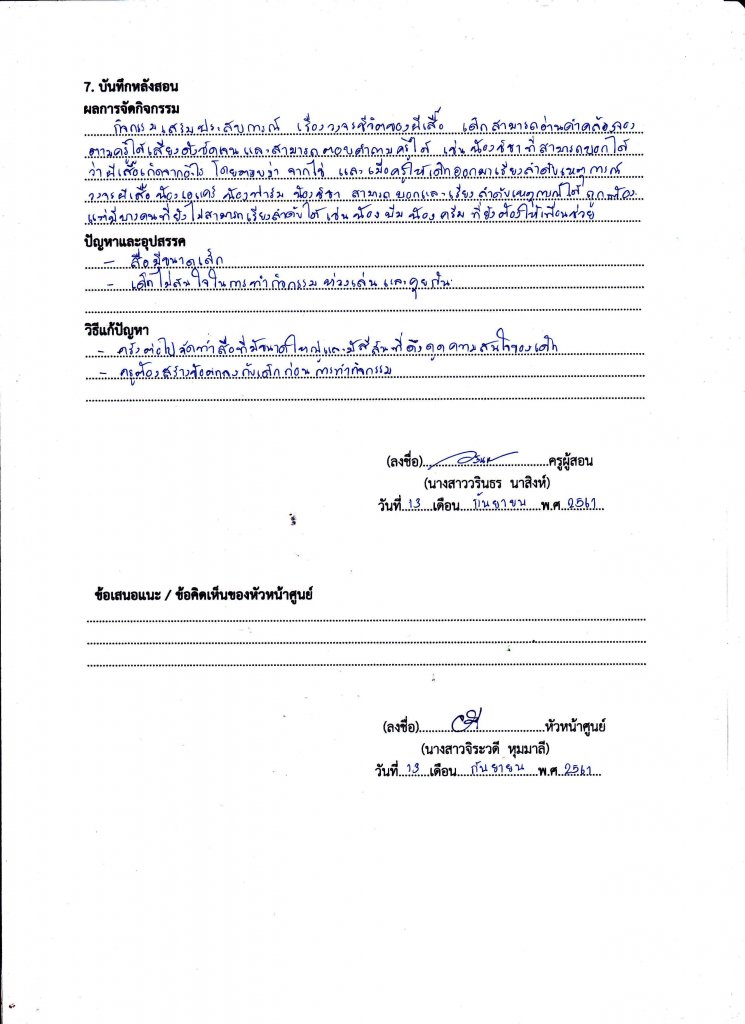 7. บันทึกหลังสอน
ผลการจัดกิจกรรม
กิจกรรมเสริมประสบการณ์ เรื่องวงจรชีวิตของผีเสื้อ เด็กสามารถอ่านคำคล้องจอง
ตามครูได้เสียงดังชัดเจน และสามารถตอบคำถามครูได้ เช่น น้องชิชา ที่สามารถบอกได้
ว่าผีเสื้อเกิดจากอะไร โดยตอบว่า จากไข่ และเมื่อครูให้เด็กออกมาเรียงลำดับเหตุการณ์
วงจรผีเสื้อ น้องเอแคร์ น้องฟาร์ม น้องชิชา สามารถบอกและเรียงลำดับเหตุการณ์ได้ถูกต้อง
แต่มีบางคนที่ยังไม่สามารถเรียงลำดับได้ เช่น น้องบีม น้องครีม ที่ยังต้องให้เพื่อนช่วย
ปัญหาและอุปสรรค
- สื่อมีขนาดเล็ก
- เด็กไม่สนใจในการทำกิจกรรม ห่วงเล่น และคุยกัน
วิธีแก้ปัญหา
- ครั้งต่อไปจัดทำสื่อที่มีขนาดใหญ่และมีสีสันที่ดึงดูดความสนใจของเด็ก
- ครูต้องสร้างข้อตกลงกับเด็กก่อนการทำกิจกรรม
(ลงชื่อ)..........ครูผู้สอน
(นางสาววรินธร นาสิงห์)
วันที่ 13 เดือน กันยายน พ.ศ 2561
ข้อเสนอแนะ / ข้อคิดเห็นของหัวหน้าศูนย์
(ลงชื่อ)..........หัวหน้าศูนย์
(นางสาวจิระวดี หุมมาลี)
วันที่ 13 เดือน กันยายน พ.ศ 2561